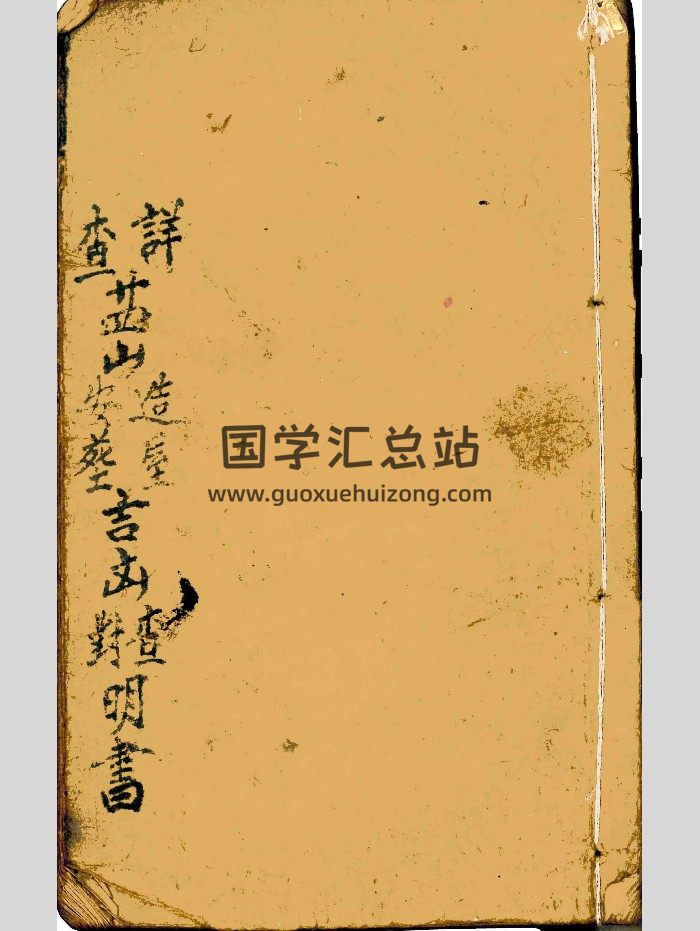 詳查廿四山造屋安葬吉凶查對明書
国学汇总站
www.guoxuehuizong.com